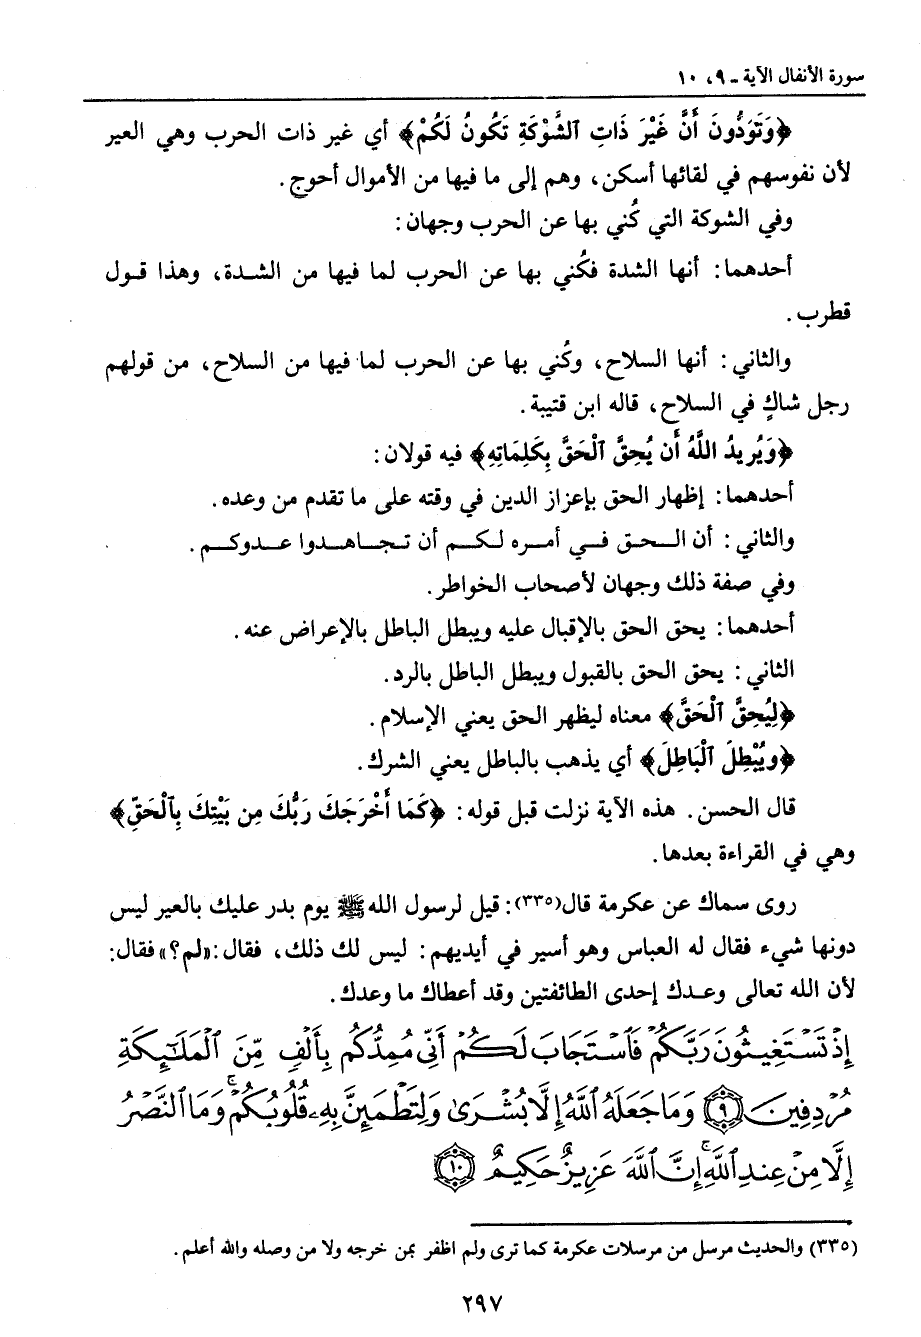 سورة الأنفال الآية ـ ٩، ١٠
﴿وَتَوَدُّونَ أَنَّ غَيْرَ ذَاتِ الشَّوْكَةِ تَكُونُ لَكُمْ﴾ أي غير ذات الحرب وهي العير
لأن نفوسهم في لقائها أسكن، وهم إلى ما فيها من الأموال أحوج.
وفي الشوكة التي كُني بها عن الحرب وجهان:
أحدهما: أنها الشدة فكُني بها عن الحرب لما فيها من الشدة، وهذا قول
قطرب.
والثاني: أنها السلاح، وكُني بها عن الحرب لما فيها من السلاح، من قولهم
رجل شاكٍ في السلاح، قاله ابن قتيبة.
﴿وَيُرِيدُ اللَّهُ أَن يُحِقَّ ٱلْحَقَّ بِكَلِمَاتِهِ﴾ فيه قولان:
أحدهما: إظهار الحق بإعزاز الدين في وقته على ما تقدم من وعده.
والثاني: أن الـحـق فـي أمـره لـكـم أن تـجـاهـدوا عـدوكـم.
وفي صفة ذلك وجهان لأصحاب الخواطر.
أحدهما: يحق الحق بالإقبال عليه ويبطل الباطل بالإعراض عنه.
الثاني: يحق الحق بالقبول ويبطل الباطل بالرد.
﴿لِيُحِقَّ ٱلْحَقَّ﴾ معناه ليظهر الحق يعني الإسلام.
﴿ويُبْطِلَ ٱلْبَاطِلَ﴾ أي يذهب بالباطل يعني الشرك.
قال الحسن. هذه الآية نزلت قبل قوله: ﴿كَمَا أَخْرَجَكَ رَبُّكَ مِن بَيْتِكَ بِٱلْحَقِّ﴾
وهي في القراءة بعدها.
روى سماك عن عكرمة قال(٣٣٥): قيل لرسول الله ﷺ يوم بدر عليك بالعير ليس
دونها شيء فقال له العباس وهو أسير في أيديهم: ليس لك ذلك، فقال: «لم؟» فقال:
لأن الله تعالى وعدك إحدى الطائفتين وقد أعطاك ما وعدك.
إِذْ تَسْتَغِيثُونَ رَبَّكُمْ فَاسْتَجَابَ لَكُمْ أَنِّي مُمِدُّكُم بِأَلْفٍ مِّنَ الْمَلَٰٓئِكَةِ
مُرْدِفِينَ ﴿٩﴾ وَمَا جَعَلَهُ اللَّهُ إِلَّا بُشْرَىٰ وَلِتَطْمَئِنَّ بِهِۦ قُلُوبُكُمْ ۚ وَمَا النَّصْرُ
إِلَّا مِنْ عِندِ اللَّهِ ۚ إِنَّ اللَّهَ عَزِيزٌ حَكِيمٌ ﴿١٠﴾
(٣٣٥) والحديث مرسل من مرسلات عكرمة كما ترى ولم اظفر بمن خرجه ولا من وصله والله أعلم.
٢٩٧